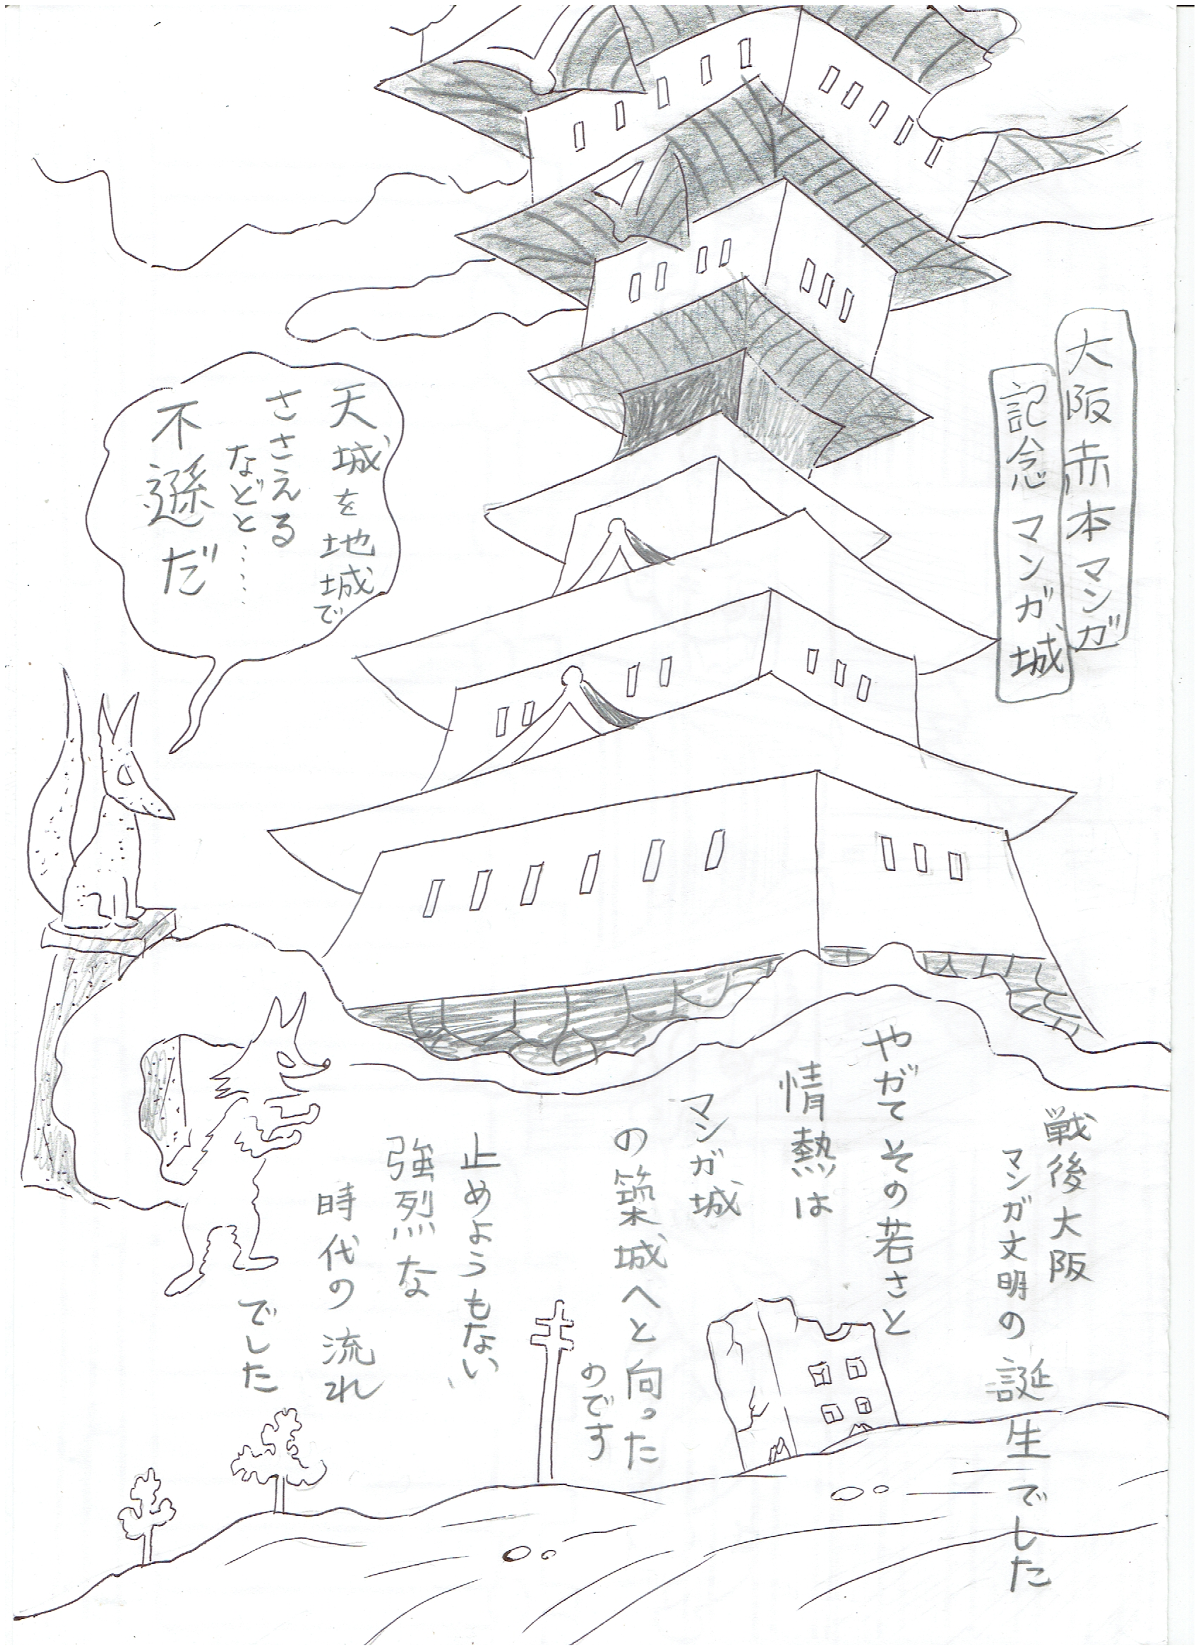 大阪赤本マンガ
記念マンガ城
天城を地城で
ささえる
などと……
不遜だ
戦後大阪
マンガ文明の誕生でした
やがてその若さと
情熱は
マンガ城
の築城へと向った
のです
止めようもない
強烈な
時代の流れ
でした